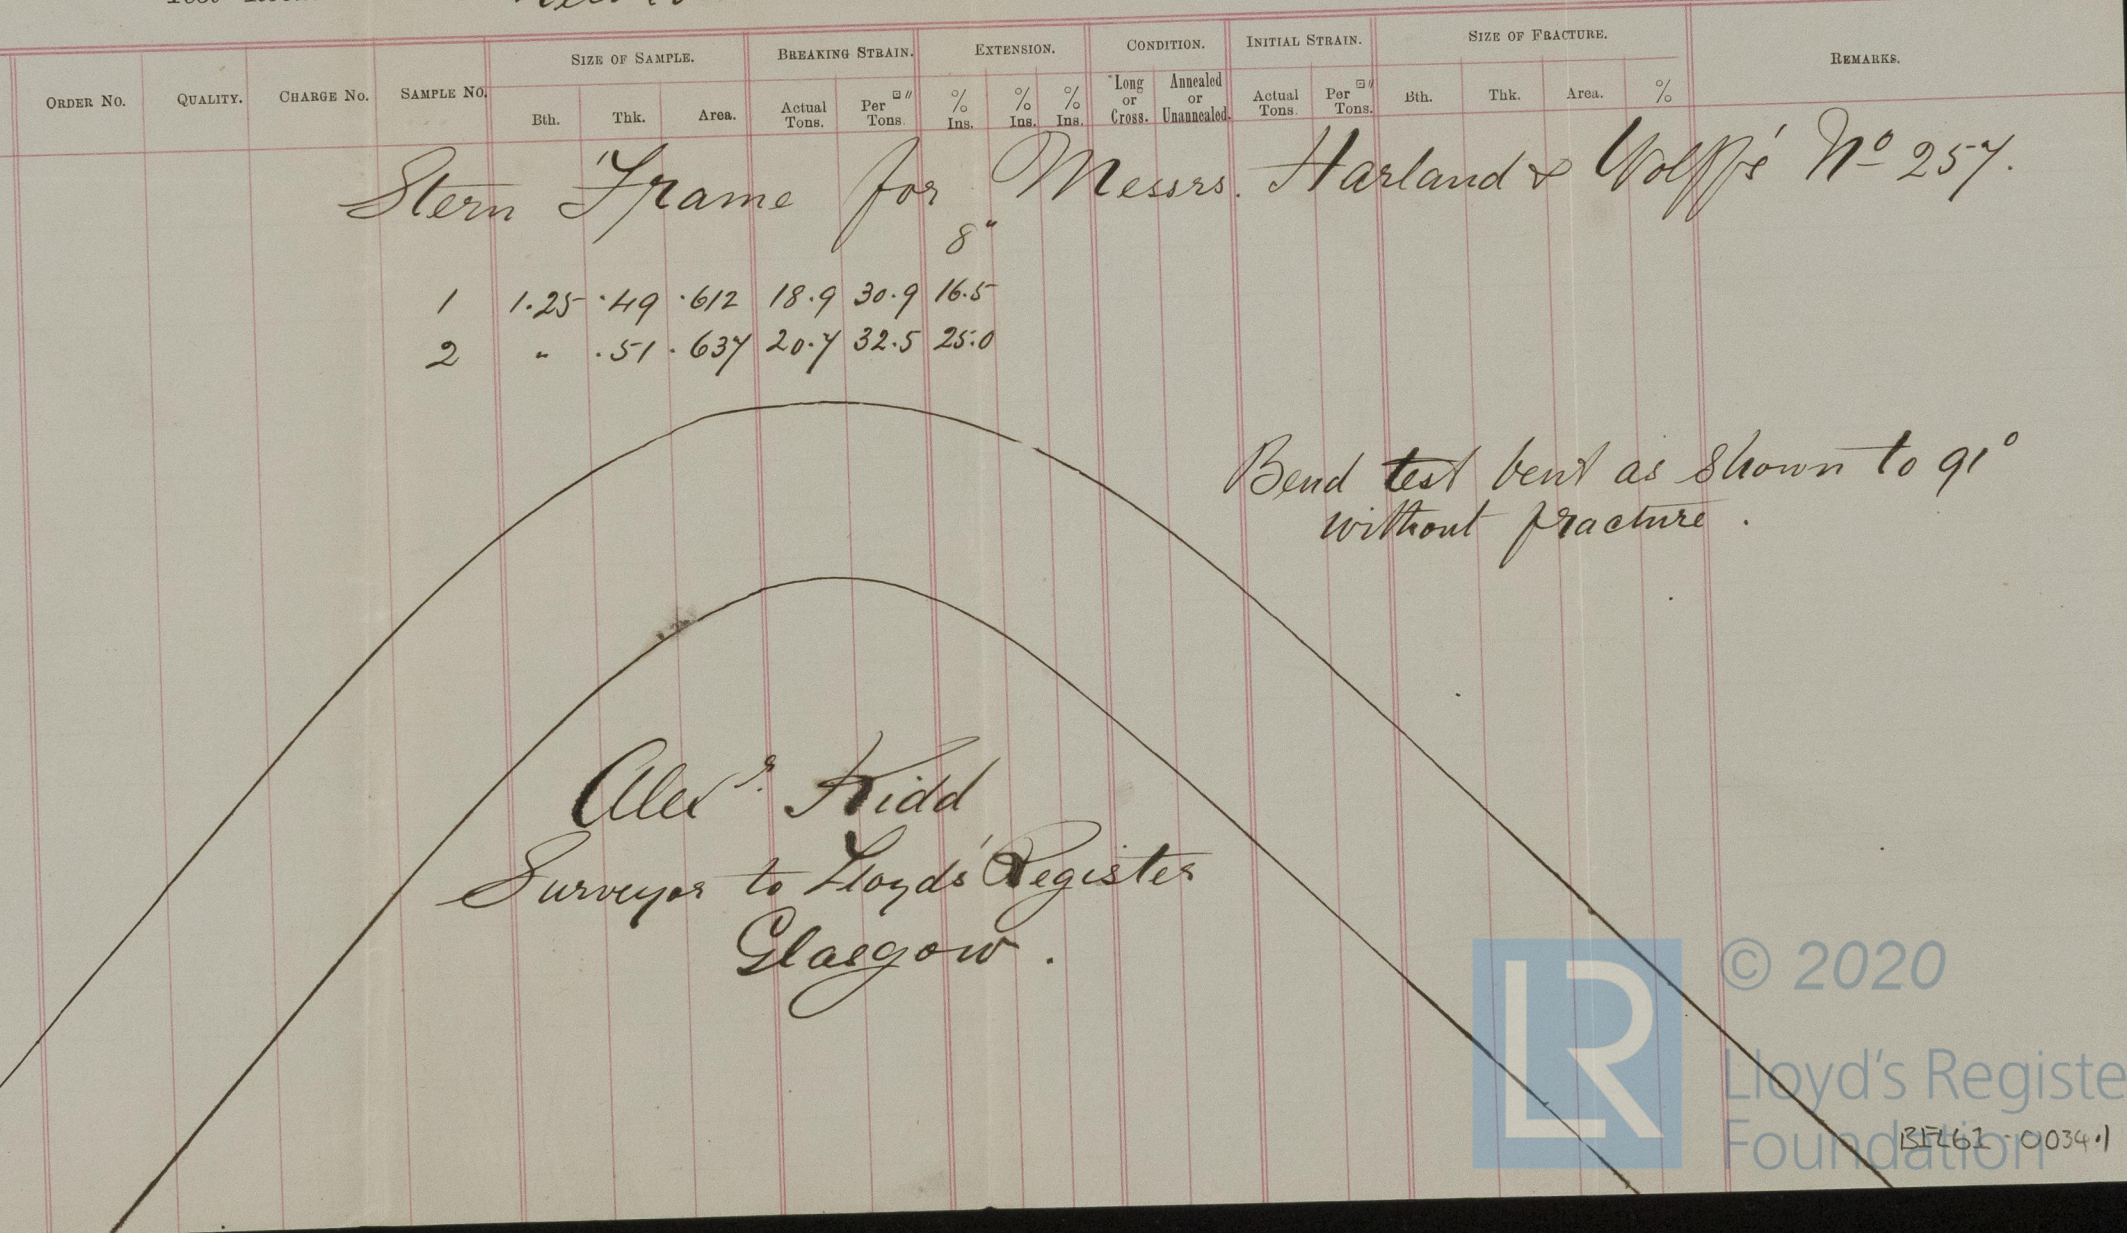 SIZE OF SAMPLE. BREAKING STRAIN. EXTENSION. CONDITION. INITIAL STRAIN. SIZE OF FRACTURE.
ORDER NO. QUALITY. CHARGE NO. SAMPLE NO. REMARKS.
Bth. Thk. Area. Actual Tons. Per □" Tons. % Ins. % Ins. % Ins. Long or Cross. Annealed or Unannealed. Actual Tons. Per □" Tons. Bth. Thk. Area. %
Stern Frame for Messrs. Harland & Wolff's No 257.
8"
1 1.25 .49 .612 18.9 30.9 16.5
2 " .51 .637 20.7 32.5 25.0
Bend test bent as shown to 91°
without fracture.
Alexr. Kidd
Surveyor to Lloyds' Register
Glasgow.
LR
© 2020
Lloyd's Registe
Foundation
0034.1